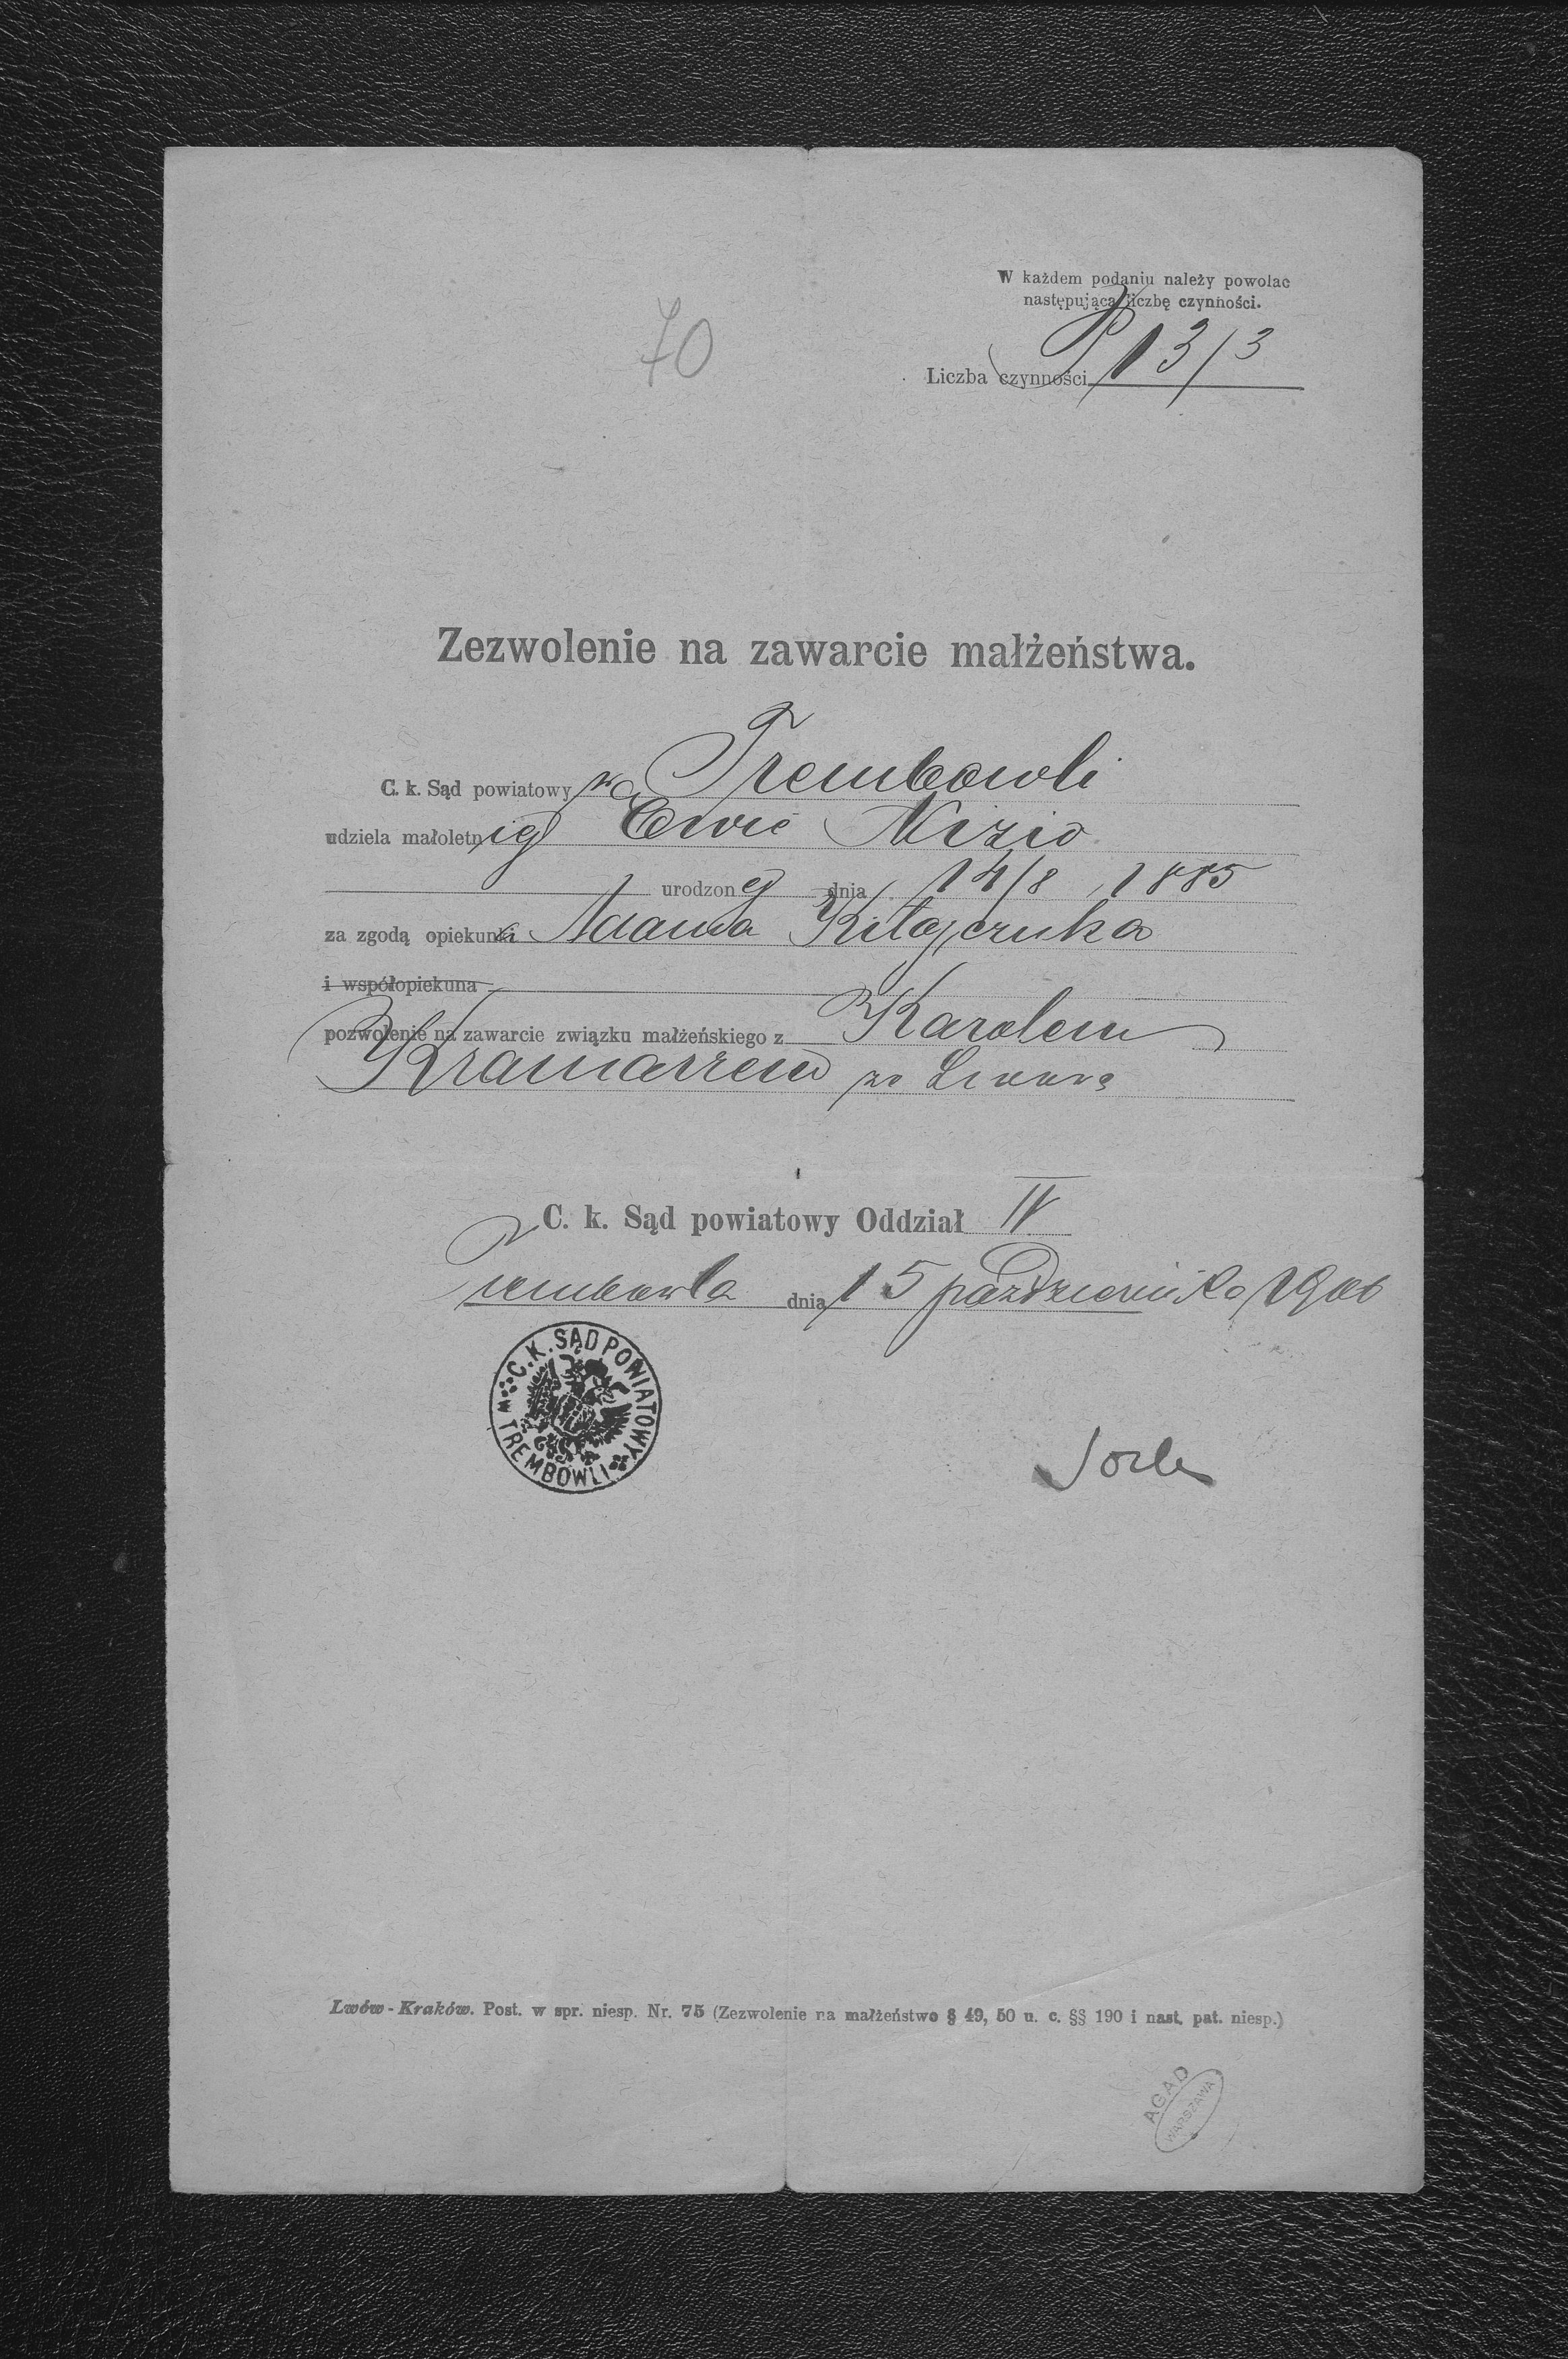 W każdem podaniu należy powołać
następującą liczbę czynności.
70
Liczba czynności P 13/3
Zezwolenie na zawarcie małżeństwa.
C. k. Sąd powiatowy w Trembowli
udziela małoletniej Ewie Nizio
urodzonej dnia 14/8 1885
za zgodą opiekuna Adama Kitajczuka
i współopiekuna
pozwolenie na zawarcie związku małżeńskiego z Karolem
Kramarzem ze Lwowa
C. k. Sąd powiatowy Oddział IV
Trembowla dnia 15 października 1906
C. K. SĄD POWIATOWY
W TREMBOWLI
Lwów-Kraków. Post. w spr. niesp. Nr. 75 (Zezwolenie na małżeństwo § 49, 50 u. c. §§ 190 i nast. pat. niesp.)
AGAD
WARSZAWA